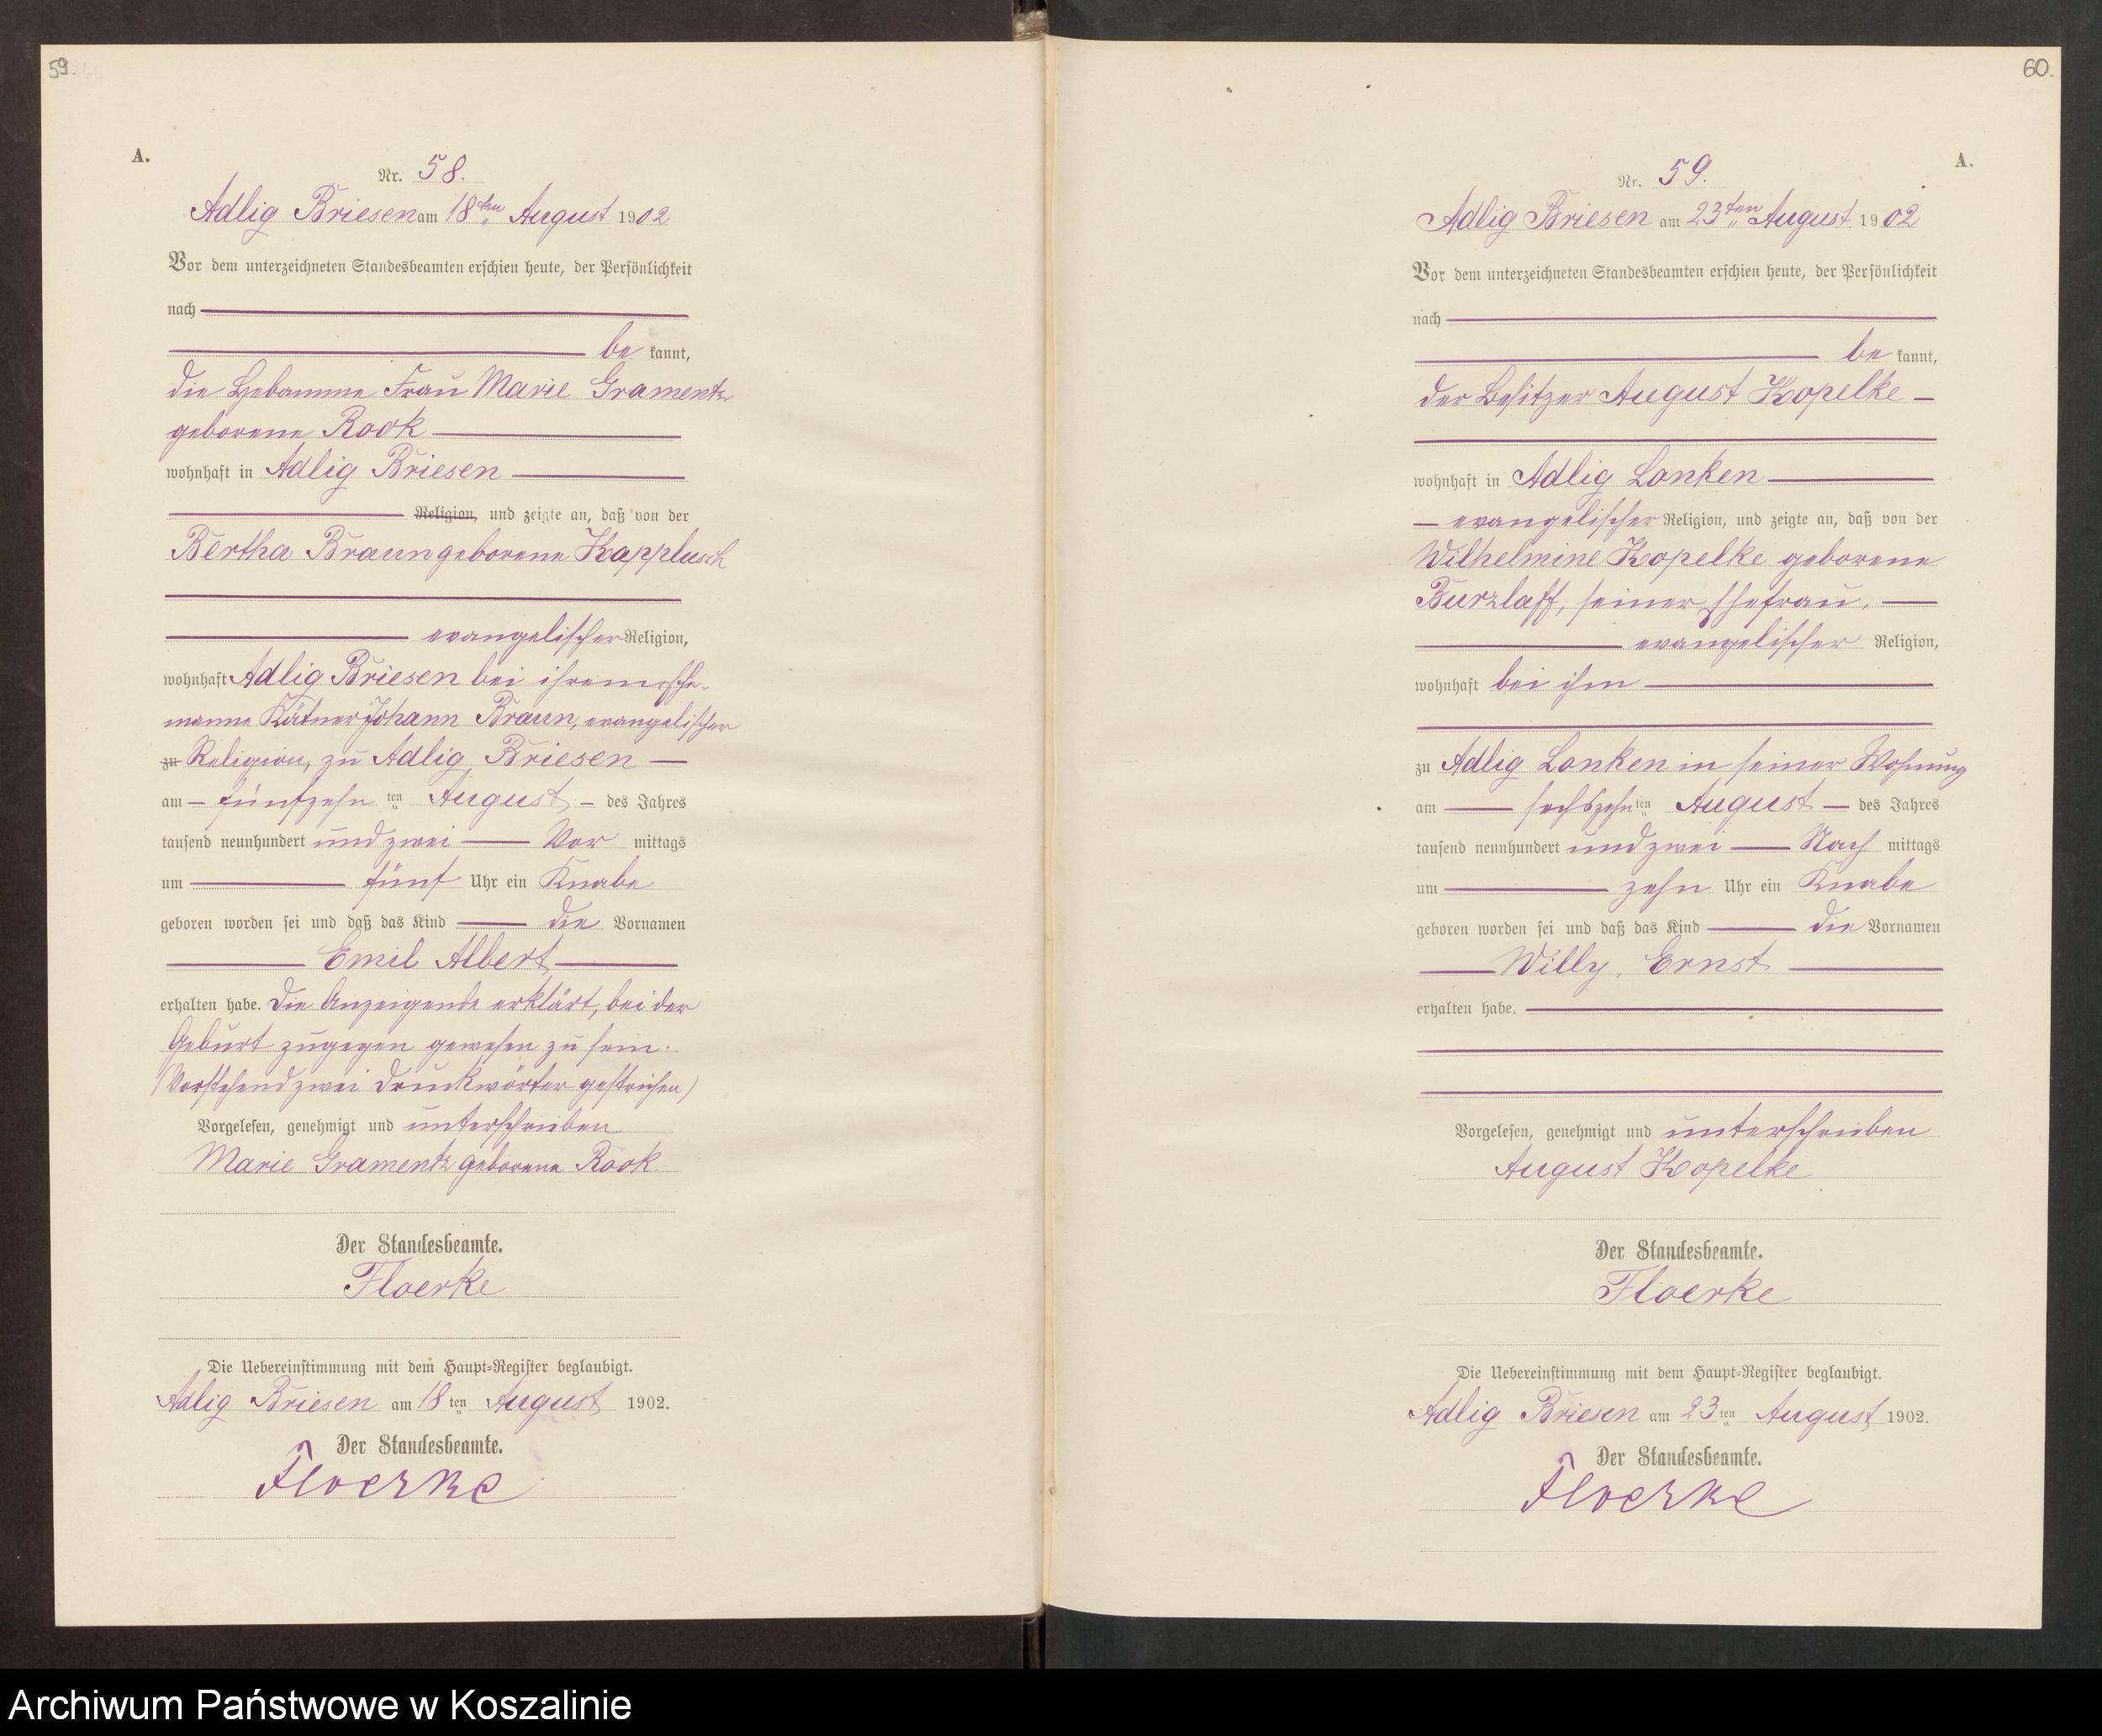 59.
A.
Nr. 58.
Adlig Briesen am 18ten August 1902
Vor dem unterzeichneten Standesbeamten erschien heute, der Persönlichkeit
nach
be kannt,
die Hebamme Frau Marie Gramentz
geborene Rook
wohnhaft in Adlig Briesen
Religion, und zeigte an, daß von der
Bertha Braun geborene Kapplusch
evangelischer Religion,
wohnhaft Adlig Briesen bei ihrem Ehe-
manne Kätner Johann Braun, evangelischer
zu Religion, zu Adlig Briesen
am fünfzehn ten August des Jahres
tausend neunhundert und zwei Vor mittags
um fünf Uhr ein Knabe
geboren worden sei und daß das Kind die Vornamen
Emil Albert
erhalten habe. Die Anzeigende erklärt, bei der
Geburt zugegen gewesen zu sein.
(Vorstehend zwei Druckwörter gestrichen)
Vorgelesen, genehmigt und unterschrieben
Marie Gramentz geborene Rook
Der Standesbeamte.
Floerke
Die Uebereinstimmung mit dem Haupt-Register beglaubigt.
Adlig Briesen am 18 ten August 1902.
Der Standesbeamte.
Floerke
60.
A.
Nr. 59.
Adlig Briesen am 23ten August 1902
Vor dem unterzeichneten Standesbeamten erschien heute, der Persönlichkeit
nach
be kannt,
der Besitzer August Kopelke
wohnhaft in Adlig Lonken
evangelischer Religion, und zeigte an, daß von der
Wilhelmine Kopelke geborene
Burzlaff, seiner Ehefrau,
evangelischer Religion,
wohnhaft bei ihm
zu Adlig Lonken in seiner Wohnung
am sechszehn ten August des Jahres
tausend neunhundert und zwei Nach mittags
um zehn Uhr ein Knabe
geboren worden sei und daß das Kind die Vornamen
Willy, Ernst
erhalten habe.
Vorgelesen, genehmigt und unterschrieben
August Kopelke
Der Standesbeamte.
Floerke
Die Uebereinstimmung mit dem Haupt-Register beglaubigt.
Adlig Briesen am 23 ten August 1902.
Der Standesbeamte.
Floerke
Archiwum Państwowe w Koszalinie